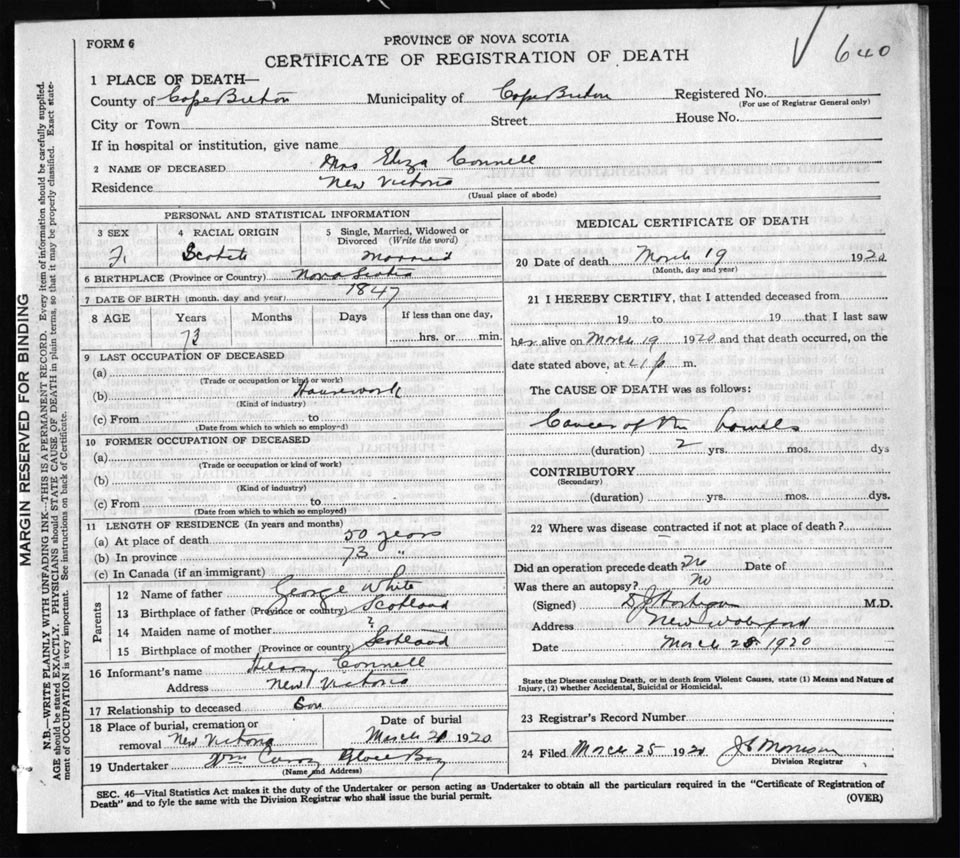 640
FORM 6
PROVINCE OF NOVA SCOTIA
CERTIFICATE OF REGISTRATION OF DEATH
1 PLACE OF DEATH—
County of Cape Breton Municipality of Cape Breton Registered No.
(For use of Registrar General only)
City or Town Street House No.
If in hospital or institution, give name
2 NAME OF DECEASED Mrs Eliza Connell
Residence New Victoria
(Usual place of abode)
PERSONAL AND STATISTICAL INFORMATION
3 SEX 4 RACIAL ORIGIN 5 Single, Married, Widowed or Divorced (Write the word)
F. Scotch Married
6 BIRTHPLACE (Province or Country) Nova Scotia
7 DATE OF BIRTH (month, day and year) 1847
8 AGE Years Months Days If less than one day,
73 hrs. or min.
9 LAST OCCUPATION OF DECEASED
(a)
(Trade or occupation or kind or work)
(b) Housework
(Kind of industry)
(c) From to
(Date from which to which so employed)
10 FORMER OCCUPATION OF DECEASED
(a)
(Trade or occupation or kind of work)
(b)
(Kind of industry)
(c) From to
(Date from which to which so employed)
11 LENGTH OF RESIDENCE (In years and months)
(a) At place of death 50 years
(b) In province 73 "
(c) In Canada (if an immigrant)
Parents
12 Name of father George White
13 Birthplace of father (Province or country) Scotland
14 Maiden name of mother ?
15 Birthplace of mother (Province or country) Scotland
16 Informant's name Connell
Address New Victoria
17 Relationship to deceased Son
18 Place of burial, cremation or removal New Victoria
Date of burial March 21 1920
19 Undertaker Wm Glace Bay
(Name and Address)
MEDICAL CERTIFICATE OF DEATH
20 Date of death March 19 1920
(Month, day and year)
21 I HEREBY CERTIFY, that I attended deceased from
19 to 19 that I last saw
her alive on March 19 1920 and that death occurred, on the
date stated above, at p m.
The CAUSE OF DEATH was as follows:
Cancer of the bowels
(duration) 2 yrs. mos. dys
CONTRIBUTORY
(Secondary)
(duration) yrs. mos. dys.
22 Where was disease contracted if not at place of death?
Did an operation precede death? No Date of
Was there an autopsy? No
(Signed) M.D.
Address New Waterford
Date March 25 1920
State the Disease causing Death, or in death from Violent Causes, state (1) Means and Nature of
Injury, (2) whether Accidental, Suicidal or Homicidal.
23 Registrar's Record Number
24 Filed March 25 1920 Morrison
Division Registrar
SEC. 46—Vital Statistics Act makes it the duty of the Undertaker or person acting as Undertaker to obtain all the particulars required in the "Certificate of Registration of
Death" and to fyle the same with the Division Registrar who shall issue the burial permit.
(OVER)
MARGIN RESERVED FOR BINDING
N.B.—WRITE PLAINLY WITH UNFADING INK—THIS IS A PERMANENT RECORD. Every item of information should be carefully supplied.
AGE should be stated EXACTLY. PHYSICIANS should STATE CAUSE OF DEATH in plain terms, so that it may be properly classified. Exact state-
ment of OCCUPATION is very important. See instructions on back of Certificate.